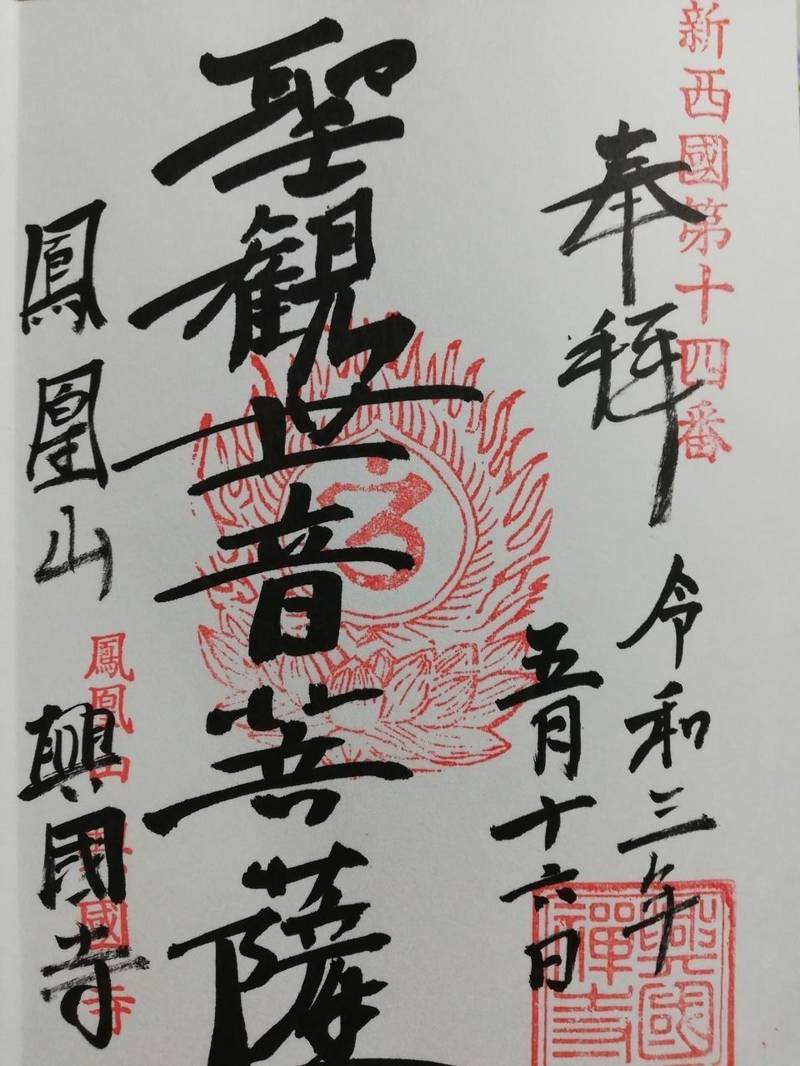 新西國第十四番
奉拜
令和三年
五月十六日
聖観世音菩薩
鳳凰山 興國寺
鳳凰山 興國寺
興國
禪寺